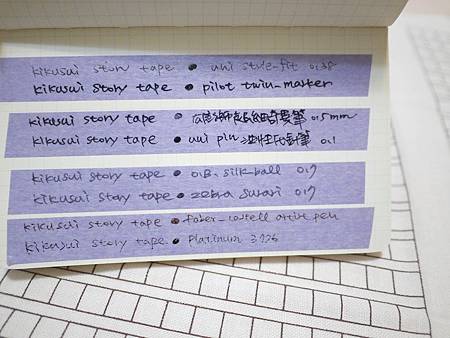 kikusui story tape ● uni style-fit 0.38
kikusui story tape ● pilot twin-marker
kikusui story tape ● 奇異筆 0.5mm
kikusui story tape ● uni pin 代針筆 0.1
kikusui story tape ● O.B. silk-ball 0.7
kikusui story tape ● zebra surari 0.7
kikusui story tape ● faber-castell artist pen
kikusui story tape ● Platinum 3776